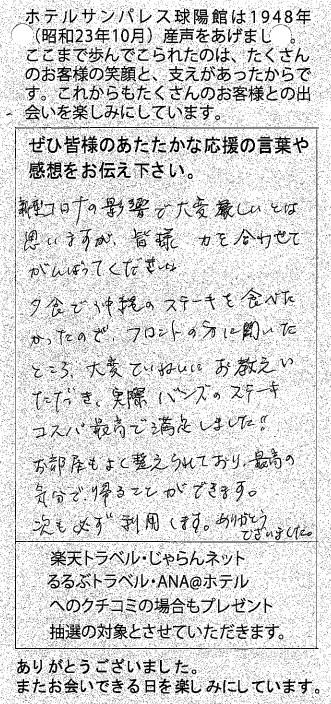 ホテルサンパレス球陽館は1948年
(昭和23年10月)産声をあげまし 。
ここまで歩んでこられたのは、たくさん
のお客様の笑顔と、支えがあったからで
す。これからもたくさんのお客様との出
会いを楽しみにしています。
ぜひ皆様のあたたかな応援の言葉や
感想をお伝え下さい。
新型コロナの影響で大変厳しいとは
思いますが、皆様 力を合わせて
がんばってくださいね
夕食で沖縄のステーキを食べた
かったので、フロントの方に聞いた
ところ、大変ていねいに お教えい
ただき、実際 バンズのステーキ
コスパ最高で満足しました!!
お部屋もよく整えられており、最高の
気分で帰ることができます。
次も必ず利用します。ありがとう
ございました。
楽天トラベル・じゃらんネット
るるぶトラベル・ANA@ホテル
へのクチコミの場合もプレゼント
抽選の対象とさせていただきます。
ありがとうございました。
またお会いできる日を楽しみにしています。